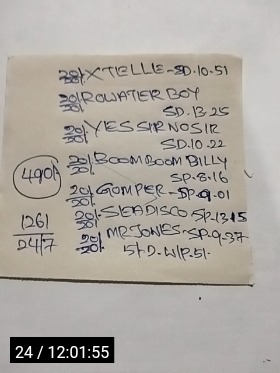 20/20/. XTELLE-SD.10.51
20/20/. ROWATER BOY
SD.13.25
20/20/. YES SIR NO SIR
SD.10.22
20/20/. BOOM BOOM BILLY
SP.8.16
490/-
20/20/. GOMPER-SP.9.01
1261
D4/7
20/20/. SEADISCO-SP.13.15
20/20/. MR JONES-SP.9.37
51-D.W/P.51-
24 / 12:01:55